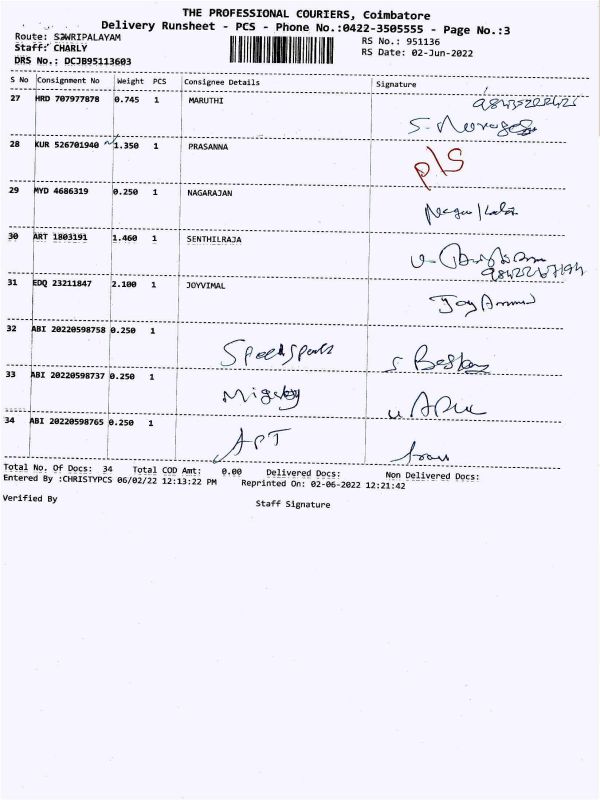 THE PROFESSIONAL COURIERS, Coimbatore
Delivery Runsheet - PCS - Phone No.:0422-3505555 - Page No.:3
Route: SOWRIPALAYAM
RS No.: 951136
Staff: CHARLY
RS Date: 02-Jun-2022
DRS No.: DCJB95113603
S No Consignment No Weight PCS Consignee Details Signature
27 HRD 707977878 0.745 1 MARUTHI
28 KUR 526701940 1.350 1 PRASANNA
P/S
29 MYD 4686319 0.250 1 NAGARAJAN
30 ART 1803191 1.460 1 SENTHILRAJA
31 EDQ 23211847 2.100 1 JOYVIMAL
32 ABI 20220598758 0.250 1
33 ABI 20220598737 0.250 1
34 ABI 20220598765 0.250 1
APT
Total No. Of Docs: 34 Total COD Amt: 0.00 Delivered Docs: Non Delivered Docs:
Entered By :CHRISTYPCS 06/02/22 12:13:22 PM Reprinted On: 02-06-2022 12:21:42
Verified By
Staff Signature